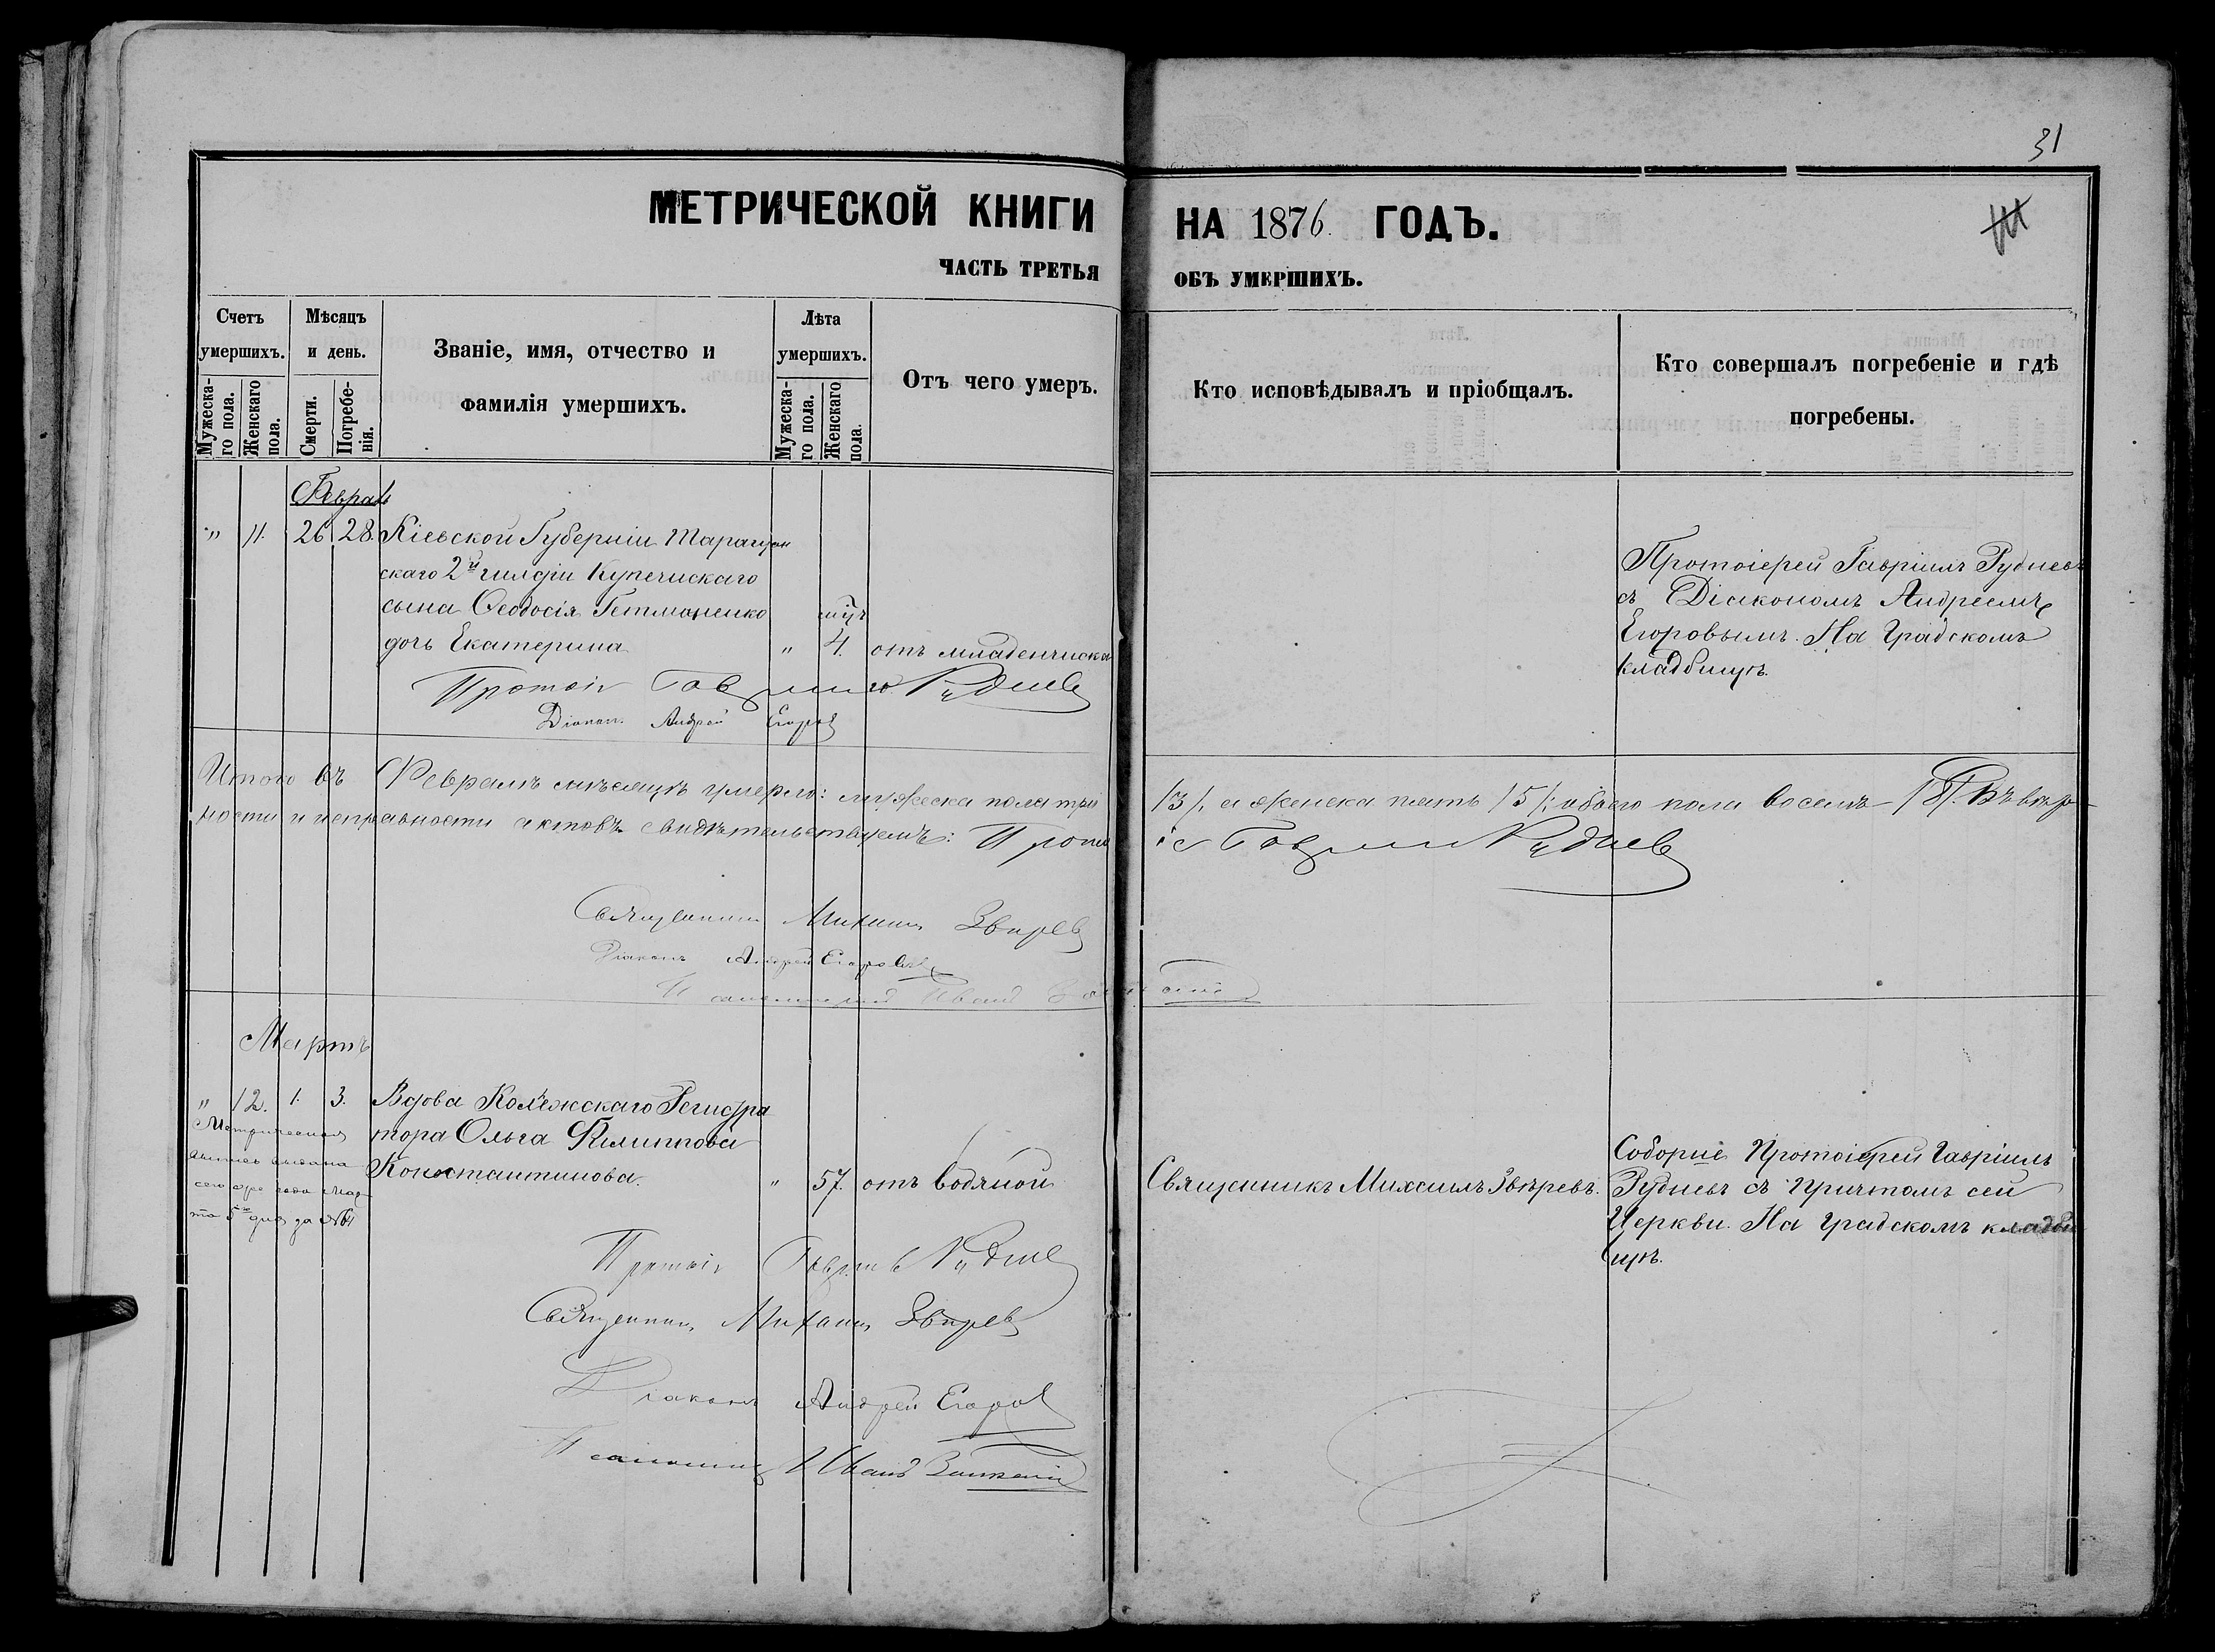 31
МЕТРИЧЕСКОЙ КНИГИ НА 1876 ГОДЪ.
ЧАСТЬ ТРЕТЬЯ ОБЪ УМЕРШИХЪ.
Счетъ умершихъ.
Мужескаго пола.
Женскаго пола.
Мѣсяцъ и день.
Смерти.
Погребенія.
Званіе, имя, отчество и
фамилія умершихъ.
Лѣта умершихъ.
Мужескаго пола.
Женскаго пола.
Отъ чего умеръ.
Кто исповѣдывалъ и пріобщалъ.
Кто совершалъ погребеніе и гдѣ
погребены.
Февраль
" 11. 26 28. Кіевской Губерніи Таращан
скаго 2й гилдіи Купеческаго
сына Ѳеодосія Гетманенко
дочь Екатерина " 4. отъ младенческа
Протоіерей Гавріилъ Рудневъ
съ Діакономъ Андреемъ
Егоровымъ. На Градскомъ
кладбищѣ.
Протоіе Гавріилъ Рудневъ
Діаконъ Андрей Егоровъ
Итого въ Февралѣ мѣсяцѣ умерло: мужеска пола три /3/, а женска пять /5/: обоего пола восемь /8/. Въ вѣр-
ности и исправности актовъ свидѣтельствуемъ: Прото іе Гавріилъ Рудневъ
Священникъ Михаилъ Звѣревъ
Діаконъ Андрей Егоровъ
Псаломщикъ Иванъ
Мартъ
" 12. 1. 3. Вдова Колежскаго Регистра
тора Ольга Филиппова
Константинова. " 57. отъ водяной
Метрическая
выпись выдана
сего же года Мар-
та 5го дня за №
Священникъ Михаилъ Звѣревъ.
Соборнѣ Протоіерей Гавріилъ
Рудневъ съ Причтомъ сей
Церкви. На Градскомъ кладби
щѣ.
Протоіе Гавріилъ Рудневъ
Священникъ Михаилъ Звѣревъ
Діаконъ Андрей Егоровъ
Псаломщикъ Иванъ